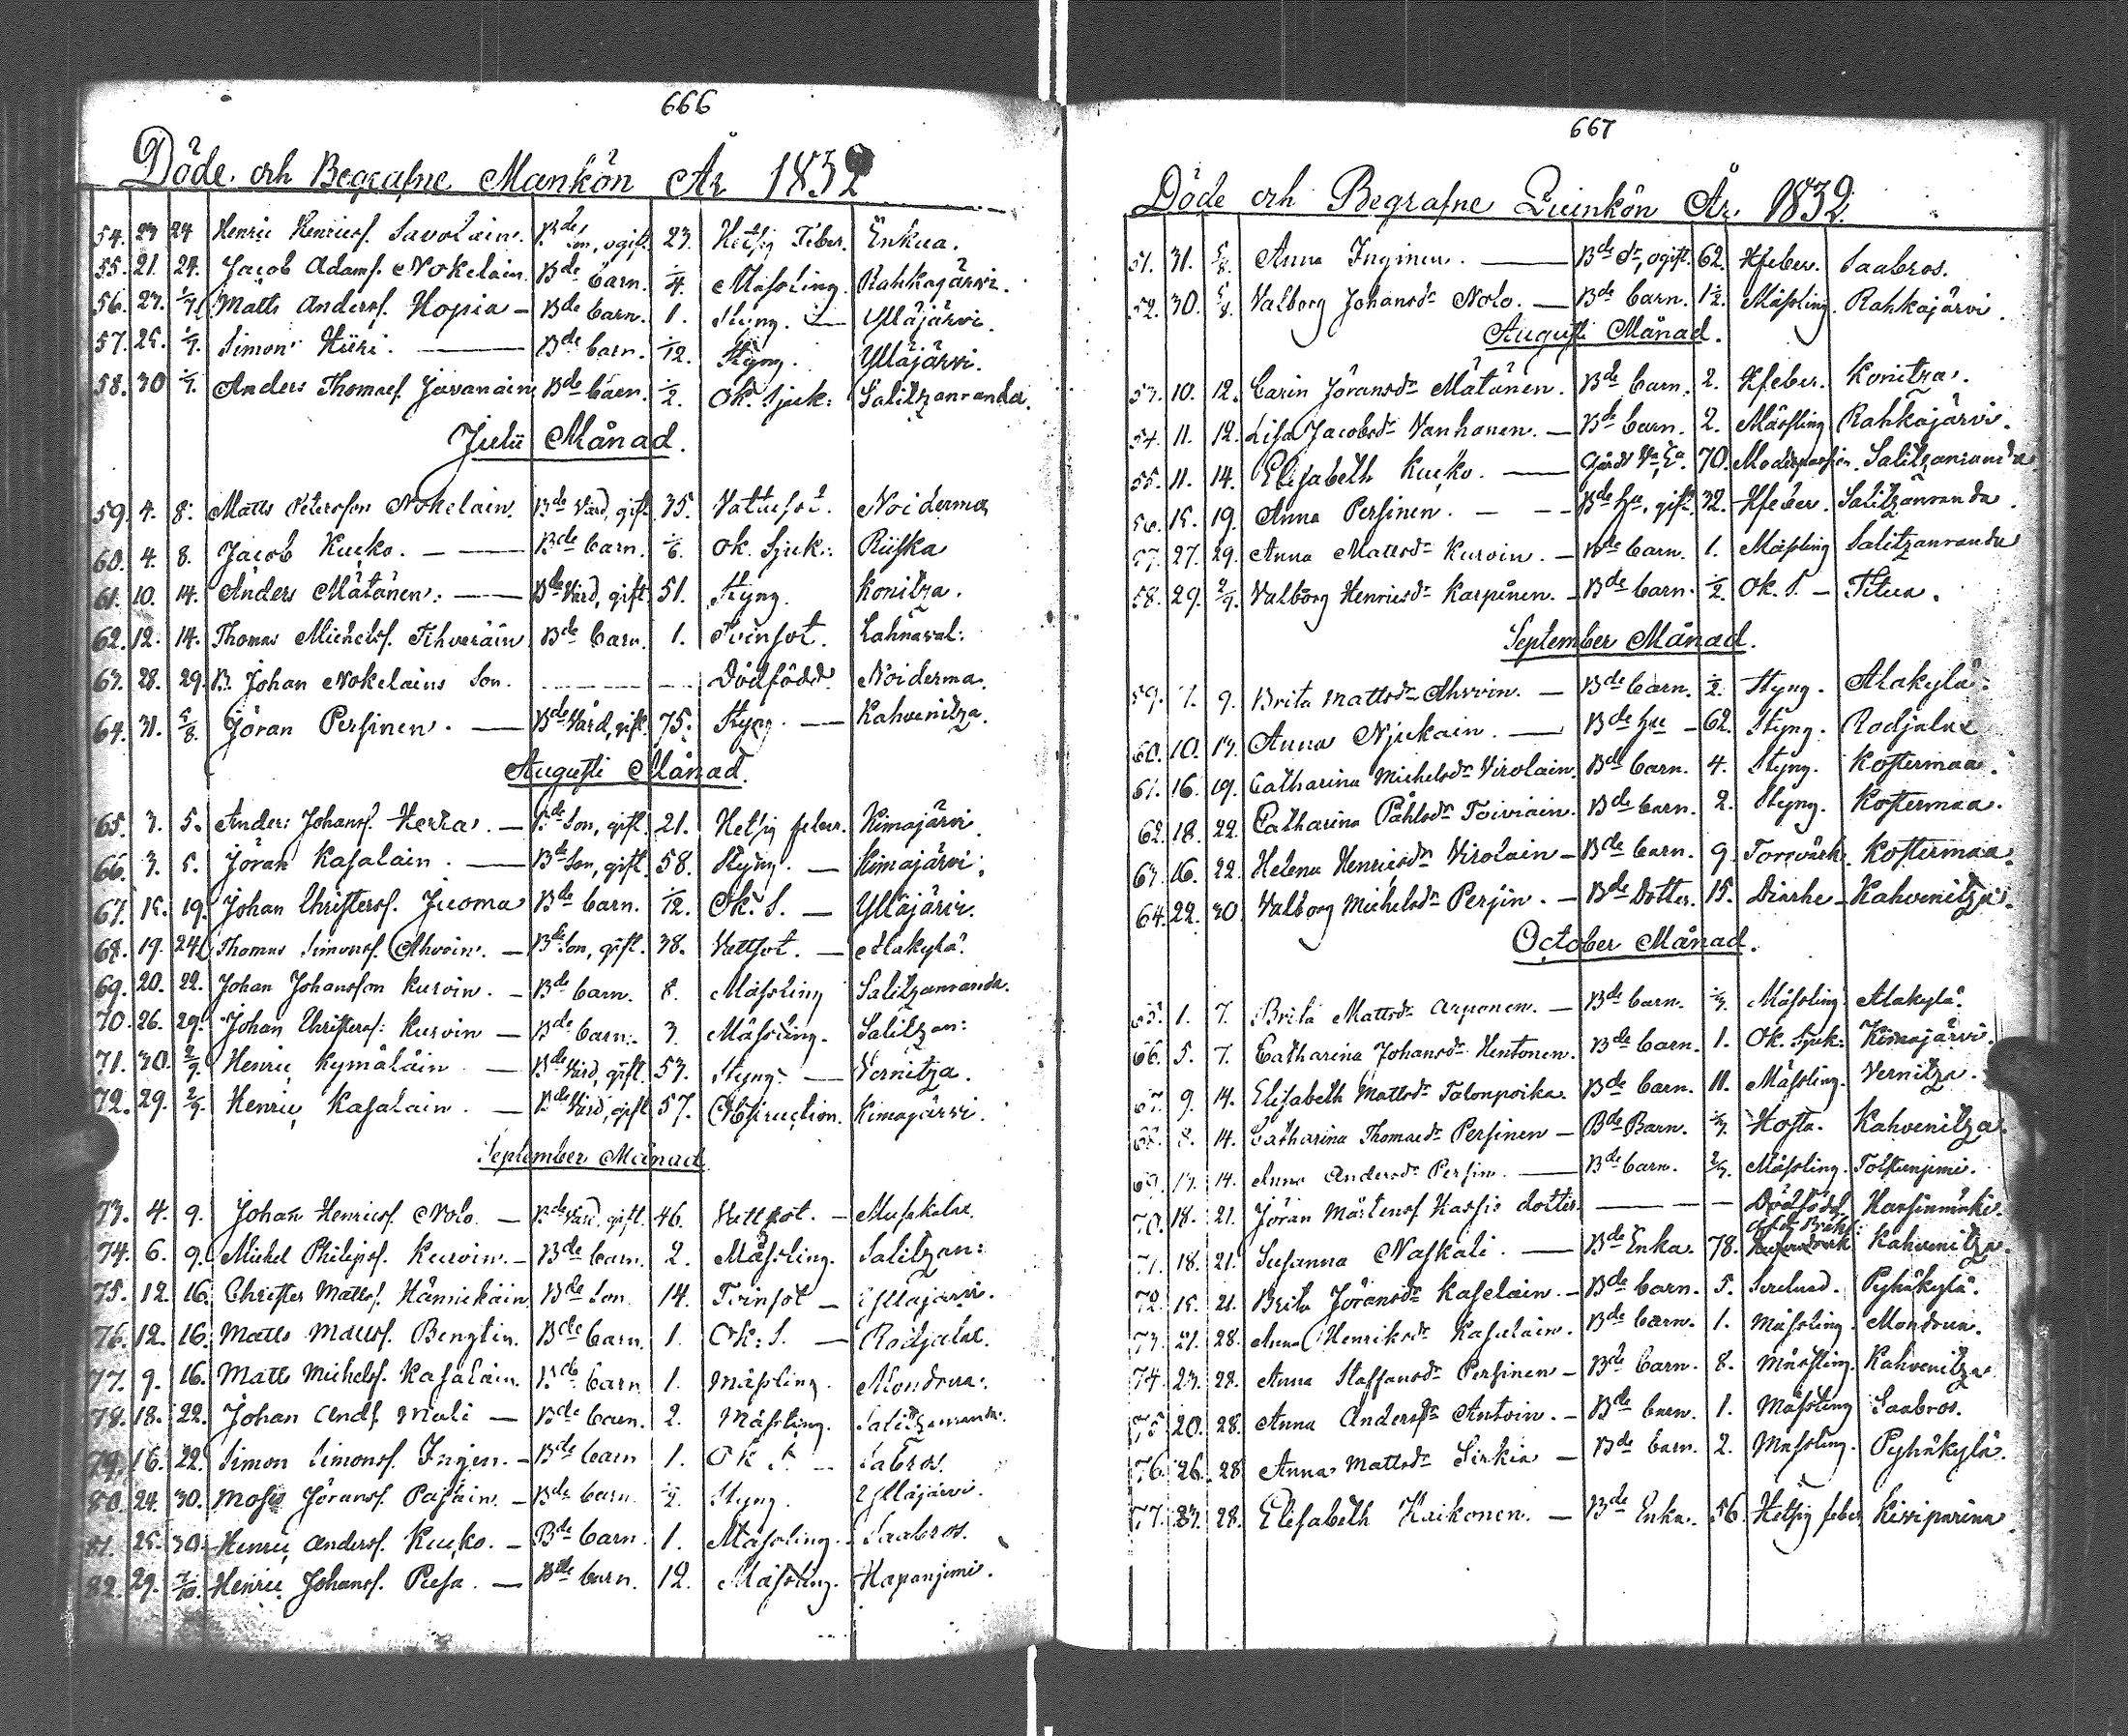 666
Döde och Begrafne Mankön År 1832
54. 23 24 Henric Henricsf. Savolain. Bde Son, ogift. 23. Hetsig Feber. Enkua.
55. 21. 24. Jacob Adamsf. Nokelain. Bde barn. 1/4. Mässling. Rahkajärvi.
56. 27. 1/7. Matts Andersf. Hopia — Bde barn. 1. Styng. — Ylläjärvi.
57. 25. 1/7. Simon Hüri. — Bde barn. 1/12. Styng. Ylläjärvi.
58. 30 1/7. Anders Thomasf. Javanain Bde barn. 1/2. Ok. Sjuk: Salitzanranda.
Julii Månad.
59. 4. 8. Matts Petersson Nokelain. Bde Värd, gift 35. Vatusot. Noiderma
60. 4. 8. Jacob Kucko. — Bde barn. 1/6. Ok. Sjuk: Riiska
61. 10. 14. Anders Mätänen. — Bde Värd, gift 51. Styng. Konitza.
62. 12. 14. Thomas Michelsf. Tihveräin Bde barn. 1. Tvinsot. Lahnaval:
63. 28. 29. B. Johan Nokelains Son. — Dödfödd. Noiderma.
64. 31. 5/8. Jöran Persinen. — Bde Värd, gift. 75. Styng. — Kahvenitza.
Augusti Månad.
65. 3. 5. Anders Johansf. Herra. — Bde Son, gift. 21. Hetsig feber. Kimajärvi.
66. 3. 5. Jöran Kasalain. — Bde Son, gift. 58. Styng. — Kimajärvi.
67. 15. 19. Johan Christersf. Juoma Bde barn. 1/12. Ok. S. — Ylläjärvi.
68. 19. 24. Thomas Simonsf. Ahvoin. — Bde Son, gift. 38. Vattsot. — Alakylä.
69. 20. 22. Johan Johansson Kurvin. — Bde barn. 8. Mässling Salitzanranda.
70. 26. 29. Johan Christersf: Kurvin — Bde barn. 3. Mässling. Salitzan:
71. 30. 2/9. Henric Kymäläin — Bde Värd, gift. 53. Styng. — Vernitza.
72. 29. 2/9. Henric Kasalain. — Bde Värd, gift 57. Obstruction. Kimajärvi.
September Månad
73. 4. 9. Johan Henricsf. Nolo. — Bde Värd, gift. 46. — Musakalac.
74. 6. 9. Michel Philipsf. Kurvin. — Bde barn. 2. Mässling. Salitzan:
75. 12. 16. Christer Mattsf. Hännickäin Bde Son 14. Tvinsot — Ylläjärvi.
76. 12. 16. Matts Mattsf. Bengtin. Bde barn 1. Ok: S. — Rodjalac.
77. 9. 16. Matts Michelsf. Kasalain. Bde barn 1. Mässling. Mondrua.
78. 18. 22. Johan Andsf. Muli — Bde barn. 2. Mässling. Salitzanranda.
79. 16. 22. Simon Simonsf. Ingin. — Bde barn 1. Ok S. — Sabros.
80. 24. 30. Moses Jöransf. Pasain. — Bde barn. 1/2. Styng. Ylläjärvi.
81. 25. 30. Henric Andersf. Kucko. — Bde barn. 1. Mässling. Saabros.
82. 29. 7/10. Henric Johansf. Pusa. — Bde barn. 12. Mässling. Hapanjemi.
667
Döde och Begrafne Quinkön År 1832
51. 31. 5/8. Anna Inginen. — Bde dr, ogift. 62. Hfeber. Saabros.
52. 30. 5/8. Valborg Johansdr Nolo. — Bde barn. 1 1/2. Mässling. Rahkajärvi.
Augusti Månad.
53. 10. 12. Carin Jöransdr Mätänen. Bde barn. 2. Hfeber. Konitza.
54. 11. 12. Lisa Jacobsdr Vanhanen. — Bde barn. 2. Mässling Rahkajärvi.
55. 11. 14. Elisabeth Kucko. — 70. Moderpassion. Salitzanranda
56. 15. 19. Anna Persinen. — Bde hu, gift. 32. Hfeber. Salitzanranda
57. 27. 29. Anna Mattsdr Kurvin. — Bde barn. 1. Mässling Salitzanranda
58. 29. 2/9. Valborg Henricsdr Karpänen. — Bde barn. 1/2. Ok. S. — Titua.
September Månad.
59. 7. 9. Brita Mattsdr Ahvoin. — Bde barn. 1/2. Styng. Alakylä.
60. 10. 13. Anna Njukain. — Bde hu — 62. Styng. Rodjalac
61. 16. 19. Catharina Michelsdr Virolain. Bde barn. 4. Styng. Kostermaa.
62. 18. 22. Catharina Påhlsdr Toiviain. Bde barn. 2. Styng. Kostermaa.
63. 16. 22. Helena Henricsdr Virolain — Bde barn. 9. Torrvärk. Kostermaa.
64. 22. 30 Valborg Michelsdr Persin. — Bde Dotter. 15. Diarhe — Kahvenitza.
October Månad.
65. 1. 7. Brita Mattsdr Arponen. — Bde barn. Mässling Alakylä.
66. 5. 7. Catharina Johansdr Hentonen. Bde barn. 1. Ok. Sjuk: Kimajärvi.
67. 9. 14. Elisabeth Mattsdr Talonpoika. Bde barn. 11. Mässling. Vernitza.
68. 8. 14. Catharina Thomasdr Persinen — Bde Barn. Hosta. Kahvenitza.
69. 13. 14. Anna Andersdr Persin. — Bde barn. Mässling. Tolstunjemi.
70. 18. 21. Jöran Mårtensf. Hassis dotter — Dödfödd Harsinmäki.
71. 18. 21. Susanna Naskali. — Bde Enka. 78. Kahvenitza.
72. 15. 21. Brita Jöransdr Kaselain. — Bde barn. 5. Pyhäkylä.
73. 21. 28. Anna Henriksdr Kasalain. Bde barn. 1. Mässling. Mondrua.
74. 23. 28. Anna Staffansdr Persinen — Bde barn. 8. Mässling. Kahvenitza
75. 20. 28. Anna Andersdr Antoin. — Bde barn. 1. Mässling Saabros.
76. 26. 28. Anna Mattsdr Sirkia — Bde barn. 2. Mässling. Pyhäkylä.
77. 23. 28. Elisabeth Kaikonen. — Bde Enka. 56. Hetsig feber Kiviparina